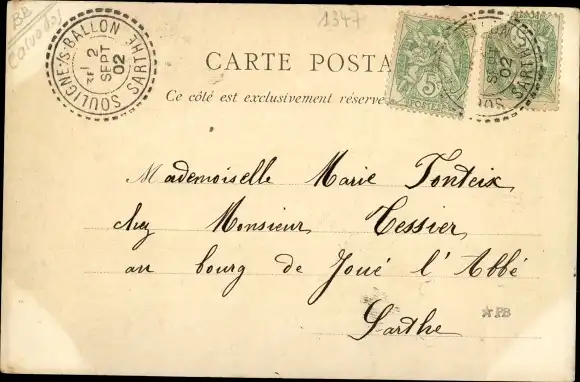 BB
Calvados
1347
SOULIGNÉ-S-BALLON SARTHE
12
SEPT
02
CARTE POSTA
Ce côté est exclusivement réservé
5c
POSTES
SEPT
02
SARTHE
Mademoiselle Marie Fonteix
chez Monsieur Tessier
au bourg de Joué l'Abbé
Sarthe
PB